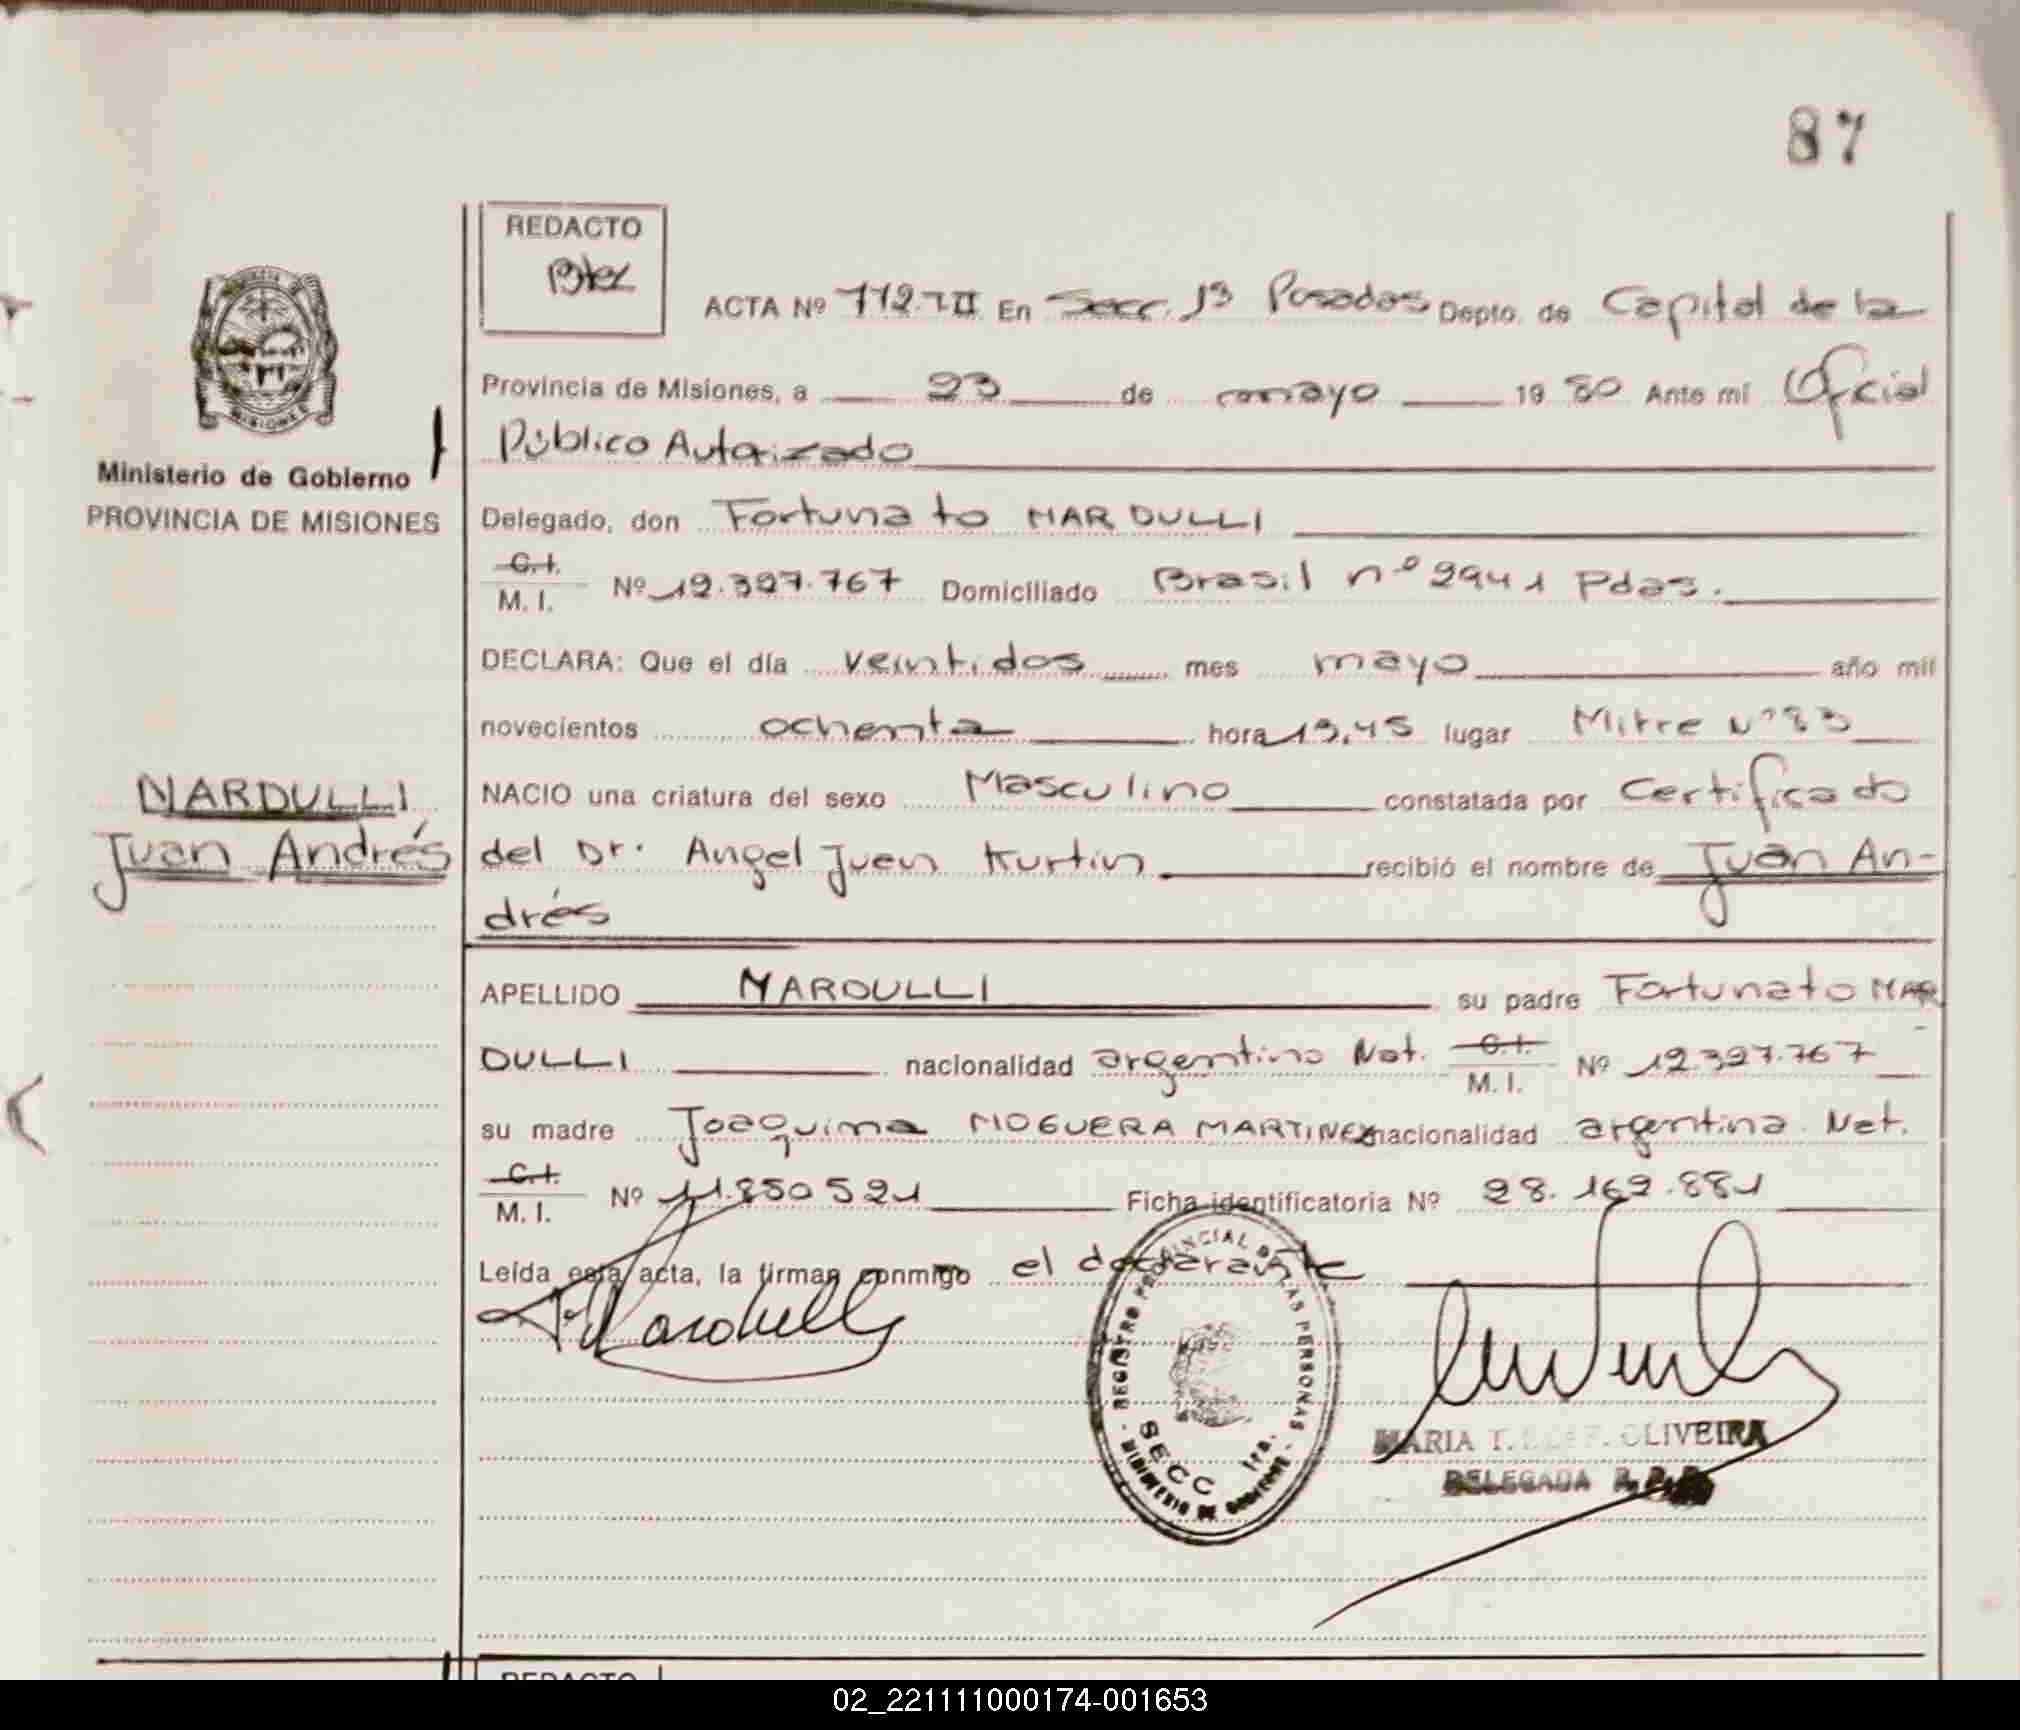 87
REDACTO
ACTA Nº 772.TII En Secc. 1ª Posadas Depto. de Capital de la
Provincia de Misiones, a 23 de mayo 1980 Ante mí Oficial
Público Autorizado
Ministerio de Gobierno
PROVINCIA DE MISIONES
Delegado, don Fortunato NARDULLI
C.I.
M. I. Nº 12.327.767 Domiciliado Brasil nº 2941 Pdas.
DECLARA: Que el día veintidos mes mayo año mil
novecientos ochenta hora 19,45 lugar Mitre Nº 83
NARDULLI
Juan Andrés
NACIO una criatura del sexo Masculino constatada por Certificado
del Dr. Angel Juan Kurtin recibió el nombre de Juan An-
drés
APELLIDO NARDULLI su padre Fortunato NAR
DULLI nacionalidad argentino Nat. C.I. M. I. Nº 12.327.767
su madre Joaquina NOGUERA MARTINEZ nacionalidad argentina Nat.
C.I.
M. I. Nº 11.850521 Ficha identificatoria Nº 28.162.881
Leída esta acta, la firman conmigo el declarante
REGISTRO PROVINCIAL DE LAS PERSONAS
SECC 1ra.
MINISTERIO DE GOBIERNO
MARIA T. OLIVEIRA
DELEGADA
REDACTO
02_221111000174-001653